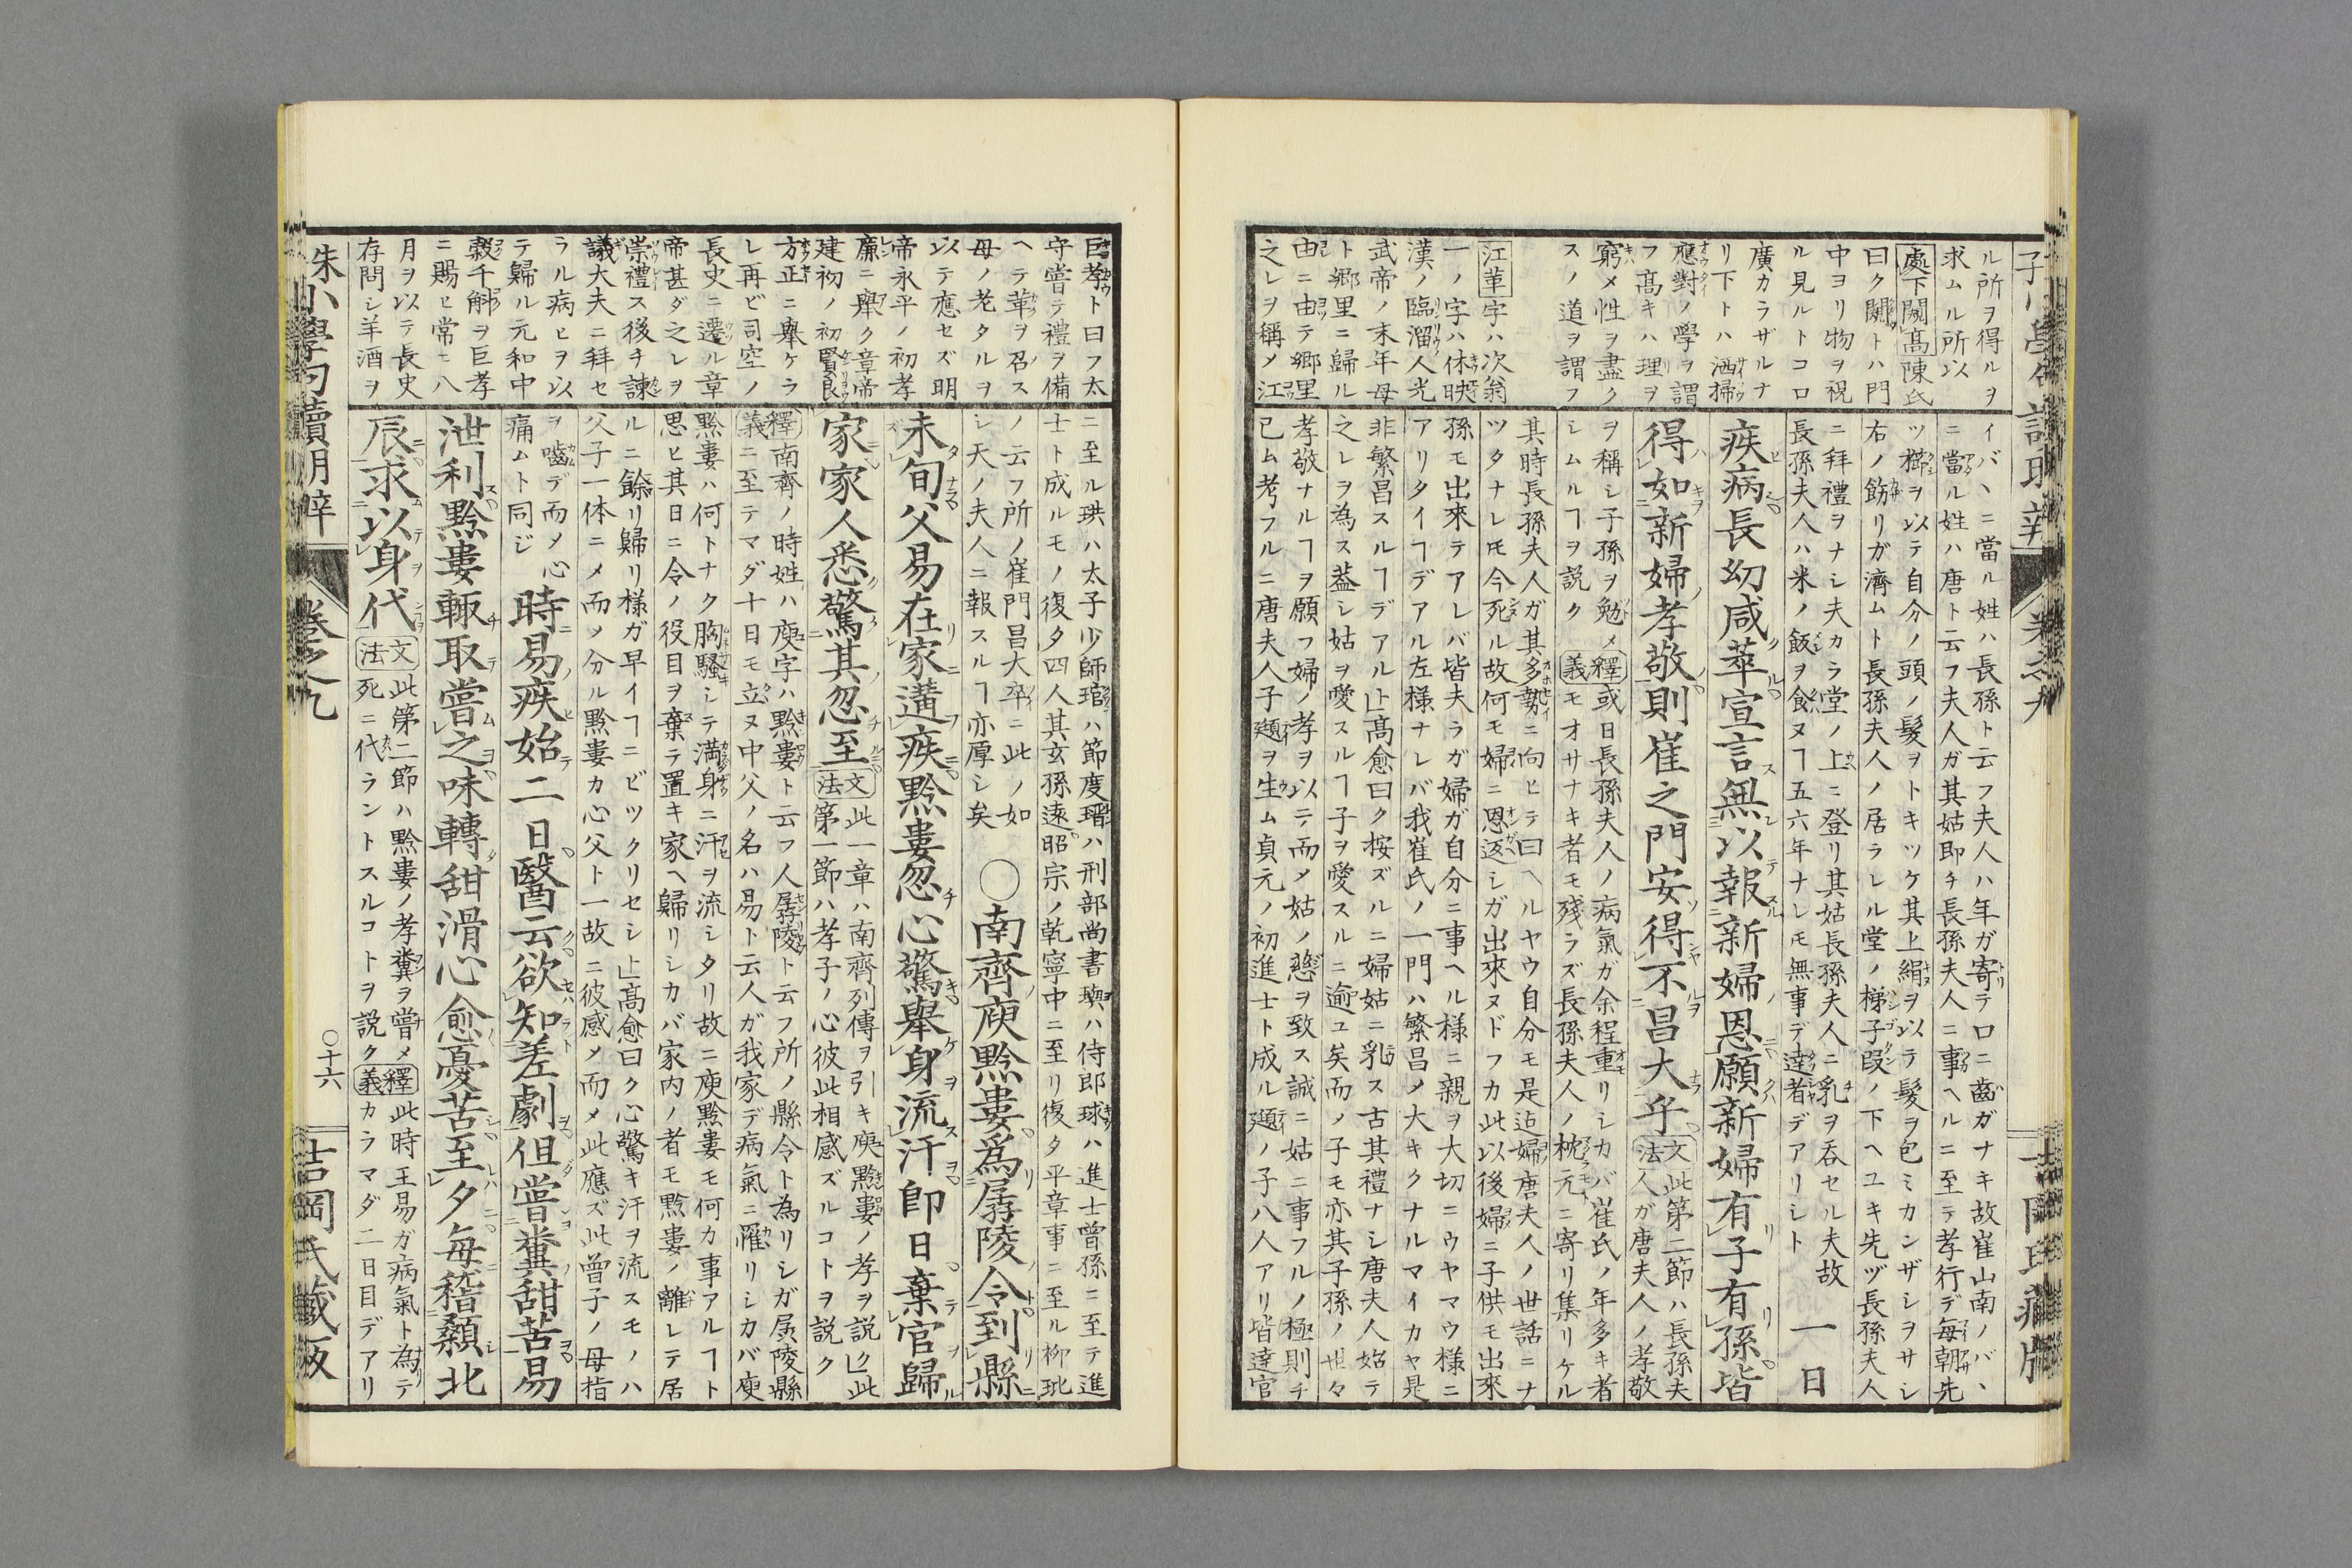 ル所ヲ得ルヲ
求ムル所以
處下闕髙陳氏
曰ク闕トハ門
中ヨリ物ヲ視
ル見ルトコロ
廣カラザルナ
リ下トハ洒掃
應對ノ學ヲ謂
フ髙キハ理ヲ
窮メ性ヲ盡ク
スノ道ヲ謂フ
江革字ハ次翁
一ノ字ハ休映
漢ノ臨溜人光
武帝ノ末年母
ト郷里ニ歸ル
由ニ由テ郷里
之レヲ稱メ江
イバヽニ當ル姓ハ長孫ト云フ夫人ハ年ガ寄テ口ニ齒ガナキ故崔山南ノバヽ
ニ當ル姓ハ唐ト云フ夫人ガ其姑即チ長孫夫人ニ事ヘルニ至テ孝行デ毎朝先
ツ櫛ヲ以テ自分ノ頭ノ髮ヲトキツケ其上絹ヲ以テ髮ヲ包ミカンザシヲサシ
右ノ飭リガ濟ムト長孫夫人ノ居ラレル堂ノ梯子段ノ下ヘユキ先ヅ長孫夫人
ニ拜禮ヲナシ夫カラ堂ノ上ニ登リ其姑長孫夫人ニ乳ヲ呑セル夫故
長孫夫人ハ米ノ飯ヲ飡ヌヿ五六年ナレモ無事デ達者デアリシト
一日
疾病長幼咸萃宣言無以報新婦恩願新婦有子有孫皆
得如新婦孝敬則崔之門安得不昌大乎
文法此第二節ハ長孫夫
人ガ唐夫人ノ孝敬
ヲ稱シ子孫ヲ勉メ
シムルヿヲ説ク
釋義或日長孫夫人ノ病氣ガ余程重リシカバ崔氏ノ年多キ者
モオサナキ者モ殘ラズ長孫夫人ノ枕元ニ寄リ集リケル
其時長孫夫人ガ其多勢ニ向ヒテ曰ヘルヤウ自分モ是迠婦唐夫人ノ世話ニナ
ツタナレ𪜈今死ル故何モ婦ニ恩返シガ出來ヌドフカ此以後婦ニ子供モ出來
孫モ出來テアレバ皆夫ラガ婦ガ自分ニ事ヘル様ニ親ヲ大切ニウヤマウ様ニ
アリタイヿデアル左様ナレバ我崔氏ノ一門ハ繁昌メ大キクナルマイカヤ是
非繁昌スルヿデアル」髙愈曰ク按ズルニ婦姑ニ乳ス古其禮ナシ唐夫人始テ
之レヲ為ス葢シ姑ヲ愛スルヿ子ヲ愛スルニ逾ユ矣而ノ子モ亦其子孫ノ世々
孝敬ナルヿヲ願フ婦ノ孝ヲ以テ而メ姑ノ慈ヲ致ス誠ニ姑ニ事フルノ極則チ
已ム考フルニ唐夫人子頲ヲ生ム貞元ノ初進士ト成ル頲ノ子八人アリ皆達官
巨孝ト曰フ太
守嘗テ禮ヲ備
ヘテ革ヲ召ス
母ノ老タルヲ
以テ應セズ明
帝永平ノ初孝
廉ニ擧ク章帝
建初ノ初賢良
方正ニ擧ケラ
レ再ビ司空ノ
長史ニ遷ル章
帝甚ダ之レヲ
崇禮ス後チ諫
議大夫ニ拜セ
ラル病ヒヲ以
テ歸ル元和中
穀千斛ヲ巨孝
ニ賜ヒ常ニ八
月ヲ以テ長史
存問シ羊酒ヲ
ニ至ル珙ハ太子少師琯ハ節度瑨ハ刑部尚書璵ハ侍郎球ハ進士曾孫ニ至テ進
士ト成ルモノ復タ四人其玄孫遠昭宗ノ乾寧中ニ至リ復タ平章事ニ至ル柳玭
ノ云フ所ノ崔門昌大卒ニ此ノ如
シ天ノ夫人ニ報スルヿ亦厚シ矣
○南齊庾黔婁爲孱陵令到縣
未旬父易在家遘疾黔婁忽心驚舉身流汗即日棄官歸
家家人悉驚其忽至
文法此一章ハ南齊列傳ヲ引キ庾黔婁ノ孝ヲ説ク」此
第一節ハ孝子ノ心彼此相感ズルコトヲ説ク
釋義南齊ノ時姓ハ庾字ハ黔婁ト云フ人孱陵ト云フ所ノ縣令ト為リシガ孱陵縣
ニ至テマダ十日モ立ヌ中父ノ名ハ易ト云人ガ我家デ病氣ニ罹リシカバ庾
黔婁ハ何トナク胸騷シテ滿身ニ汗ヲ流シタリ故ニ庾黔婁モ何カ事アルヿト
思ヒ其日ニ令ノ役目ヲ棄テ置キ家ヘ歸リシカバ家内ノ者モ黔婁ノ離レテ居
ルニ餘リ歸リ様ガ早イヿニビツクリセシ」髙愈曰ク心驚キ汗ヲ流スモノハ
父子一体ニメ而メ分ル黔婁カ心父ト一故ニ彼感メ而メ此應ズ此曾子ノ母指
ヲ囓デ而メ心
痛ムト同ジ
時易疾始二日醫云欲知差劇但嘗糞甜苦易
泄利黔婁輙取嘗之味轉甜滑心愈憂苦至夕毎稽顙北
辰求以身代
文法此第二節ハ黔婁ノ孝糞ヲ嘗メ
死ニ代ラントスルコトヲ説ク
釋義此時王易ガ病氣ト為テ
カラマダ二日目デアリ
朱小學句讀明辯 卷之九
○十六
吉岡氏藏板